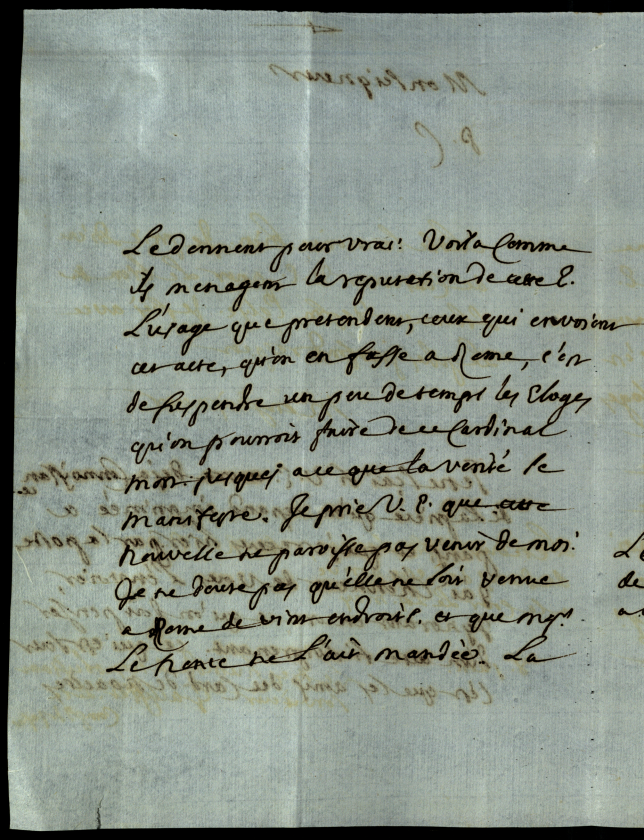 Le donnent pour vrai. Voila comme
ils menagent la reputation de cette E.
L'usage que pretendent, ceux qui envoient
cet acte, qu'on en fasse a Rome, c'est
de suspendre un peu de temps les Eloges
qu'on pourroit faire de ce Cardinal
mort jusques a ce que la verité se
manifeste. Je prie V. E. que cette
nouvelle ne paroisse pas venir de moi.
Je ne doute pas qu'elle ne soit venue
a Rome de vint endroits. et que mgr.
Le nonce ne L'ait mandée. La